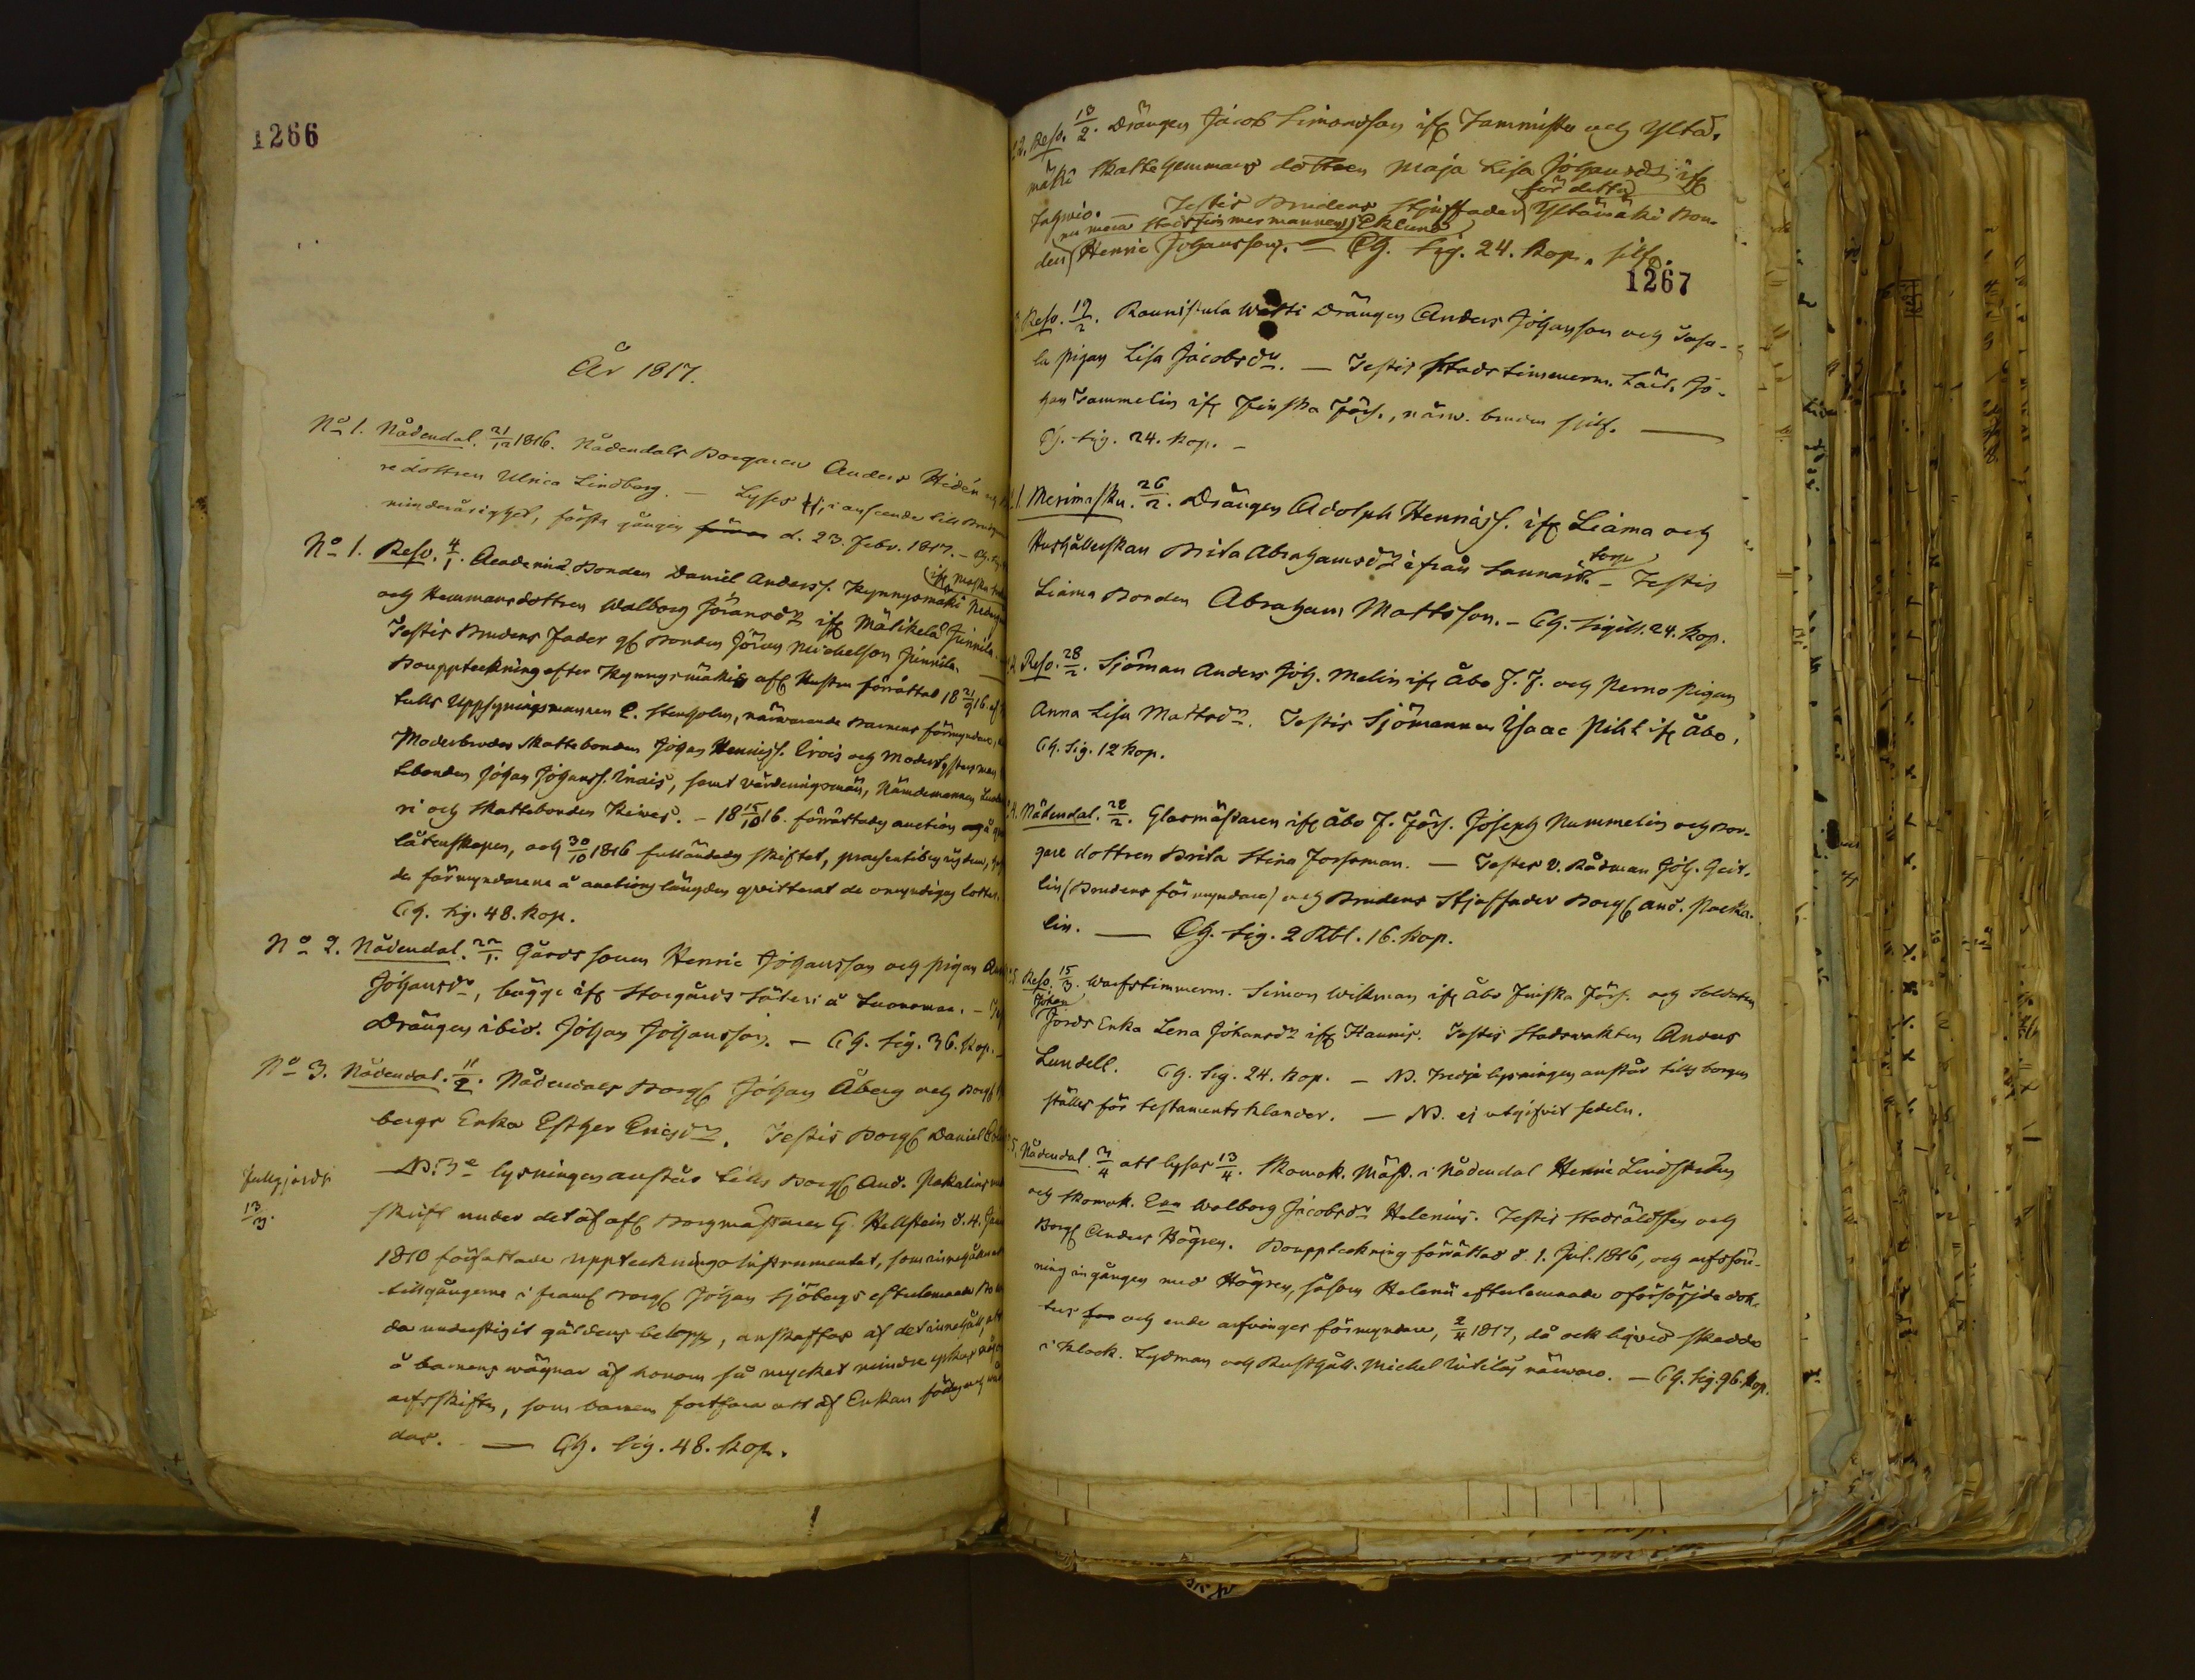 1266
År 1817.
No 1. Nådendal. 21/12 1816. Nådendals Borgaren Anders Widén och
redottren Ulrica Lindberg. — Lyses i anseende till
minderårighet, första gången d. 23. Febr. 1817. —
No 1. Reso. 4/1. Academiæ Bonden Daniel Anderss. Kynnysmäki
och Hemmansdottren Walborg Jöransdr ifr Mälikelä Junnila.
Testis Brudens Fader gl Bonden Jöran Michelson Junnila. —
Bouppteckning efter Kynnysmäkis afl Hustru förrättad 18 21/9 16. af
talls Uppsyningsmannen C. Stenholm, närwarande Barnens förmyndare,
Moderbroder Skattebonden Johan Hennigs. Erois och Moders
tebonden Johan Johanss. Inais, samt värderingsmän, Nämdemannen
ri och Skattebonden Keiwas. — 18 15/10 16. förrättades auction
låtenskapen, och 30/10 1816 fulländades skiftet, præsentibus iisdem,
de förmyndarena å auctions längden qvitterat de omyndigas lotter.
Ch. Sig. 48. kop.
No 2. Nådendal. 22/1. Gårds sonen Henric Johansson och pigan
Johansdr, bägge ifr Storgårds Säteri å Luonomaa. —
Drängen ibid. Johan Johansson. — Ch. Sig. 36. kop. —
No 3. Nådendal. 11/2. Nådendals Borgl Johan Åberg och Borgl
bergs Enka Esther Ericsdr. Testis Borgl Daniel
Fullgjordt
13/3.
NB. 3e lysningen anstår tills Borgl And. Pakalins
skrift under det af afl Borgmästaren G. Hellstein d. 4.
1810 författade uppteckningsInstrumentet, som innehåller
tillgångarna i framl Borgl Johan Sjöbergs efterlemnade
da understigit gäldens belopp, anskaffas af det innehåll, att
å barnens wägnar af honom så mycket mindre yrkas något
arfsskifte, som barnen fortfara att af Enkan
das. — Ch. Sig. 48. kop.
Reso. 13/2. Drängen Jacob Simonsson ifr Tammisto och Yltä-
mäki Skatte Hemmans dottren Maja Lisa Johansdr ifr
för detta
Testis Brudens Stjuffader Yltämäki Bon-
nu mera Stadstimmermannen Eklund
den Henric Johansson. — Ch. Sig. 24. kop. silf.
1267
Reso. 19/2. Raunistula Wätti Drängen Anders Johansson och
la pigan Lisa Jacobsdr. — Testis Stadstimmerm. Jo-
han Sammelin ifr Finska Förs., närw. bruden sjelf. —
Ch. Sig. 24. kop. —
Merimasku. 26/2. Drängen Adolph Henricss. ifr Liama och
torp
Hushållerskan Brita Abrahamsdr ifrån Lannais. — Testis
Liama Bonden Abraham Mattsson. — Ch. Sigill. 24. kop.
Reso. 28/2. Sjöman Anders Joh. Melin ifr Åbo F. F. och Perno pigan
Anna Lisa Mattsdr. Testis Sjömannen Isaac Pihl ifr Åbo.
Ch. Sig. 12 kop.
Nådendal. 28/2. Glasmästaren ifr Åbo F. Förs. Joseph Nummelin och Bor-
gare dottren Brita Stina Forssman. — Testes V. Rådman Joh. Geit-
lin (Brudens förmyndare) och Brudens Stjuffader Borgl And. Packa-
lin. — Ch. Sig. 2 Rbl. 16. kop.
Reso. 15/3. Warfstimmerm. Simon Wikman ifr Åbo Finska Förs. och Soldaten
Johan
Fords Enka Lena Johansdr ifr Haunis. Testis Stadswakten Anders
Lundell. Ch. Sig. 24. kop. — NB. Tredje lysningen anstår tills borgen
ställes för testaments klander. — NB. ej utgifvit sedeln.
Nådendal. 7/4 att lysas 13/4. Skomak. Mäst. i Nådendal Henric Lindstedt
och Skomak. Enk Walborg Jacobsdr Helenius. Testis Stadsäldsten och
Borgl Anders Högren. Bouppteckning förrättad d. 1. Jul. 1816, och arfsför-
ning ingången med Högren, såsom Helenii efterlemnade oförsörjda dot-
ters och enda arfvinges förmyndare, 2/4 1817, då ock liqvid skedde
i Klock. Lydman och Rusthåll. Michel närwaro. — Ch. Sig. 96. kop.